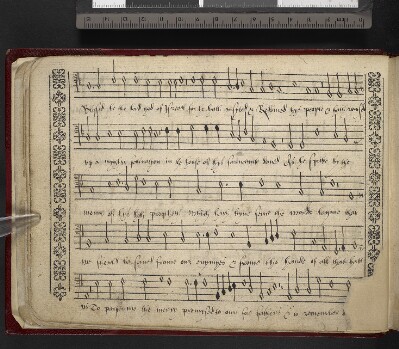 lord god of Israel for he hath visited & Redemed his people & hath
up a mightie salvation in the house of his servaunte David As he spake by the
mouthe of his holy prophets which have bene sence the world began that
we shuld be saved from our enymyes & from the hands of all that hate
us To performe the mercy promised to our fathers & to remember